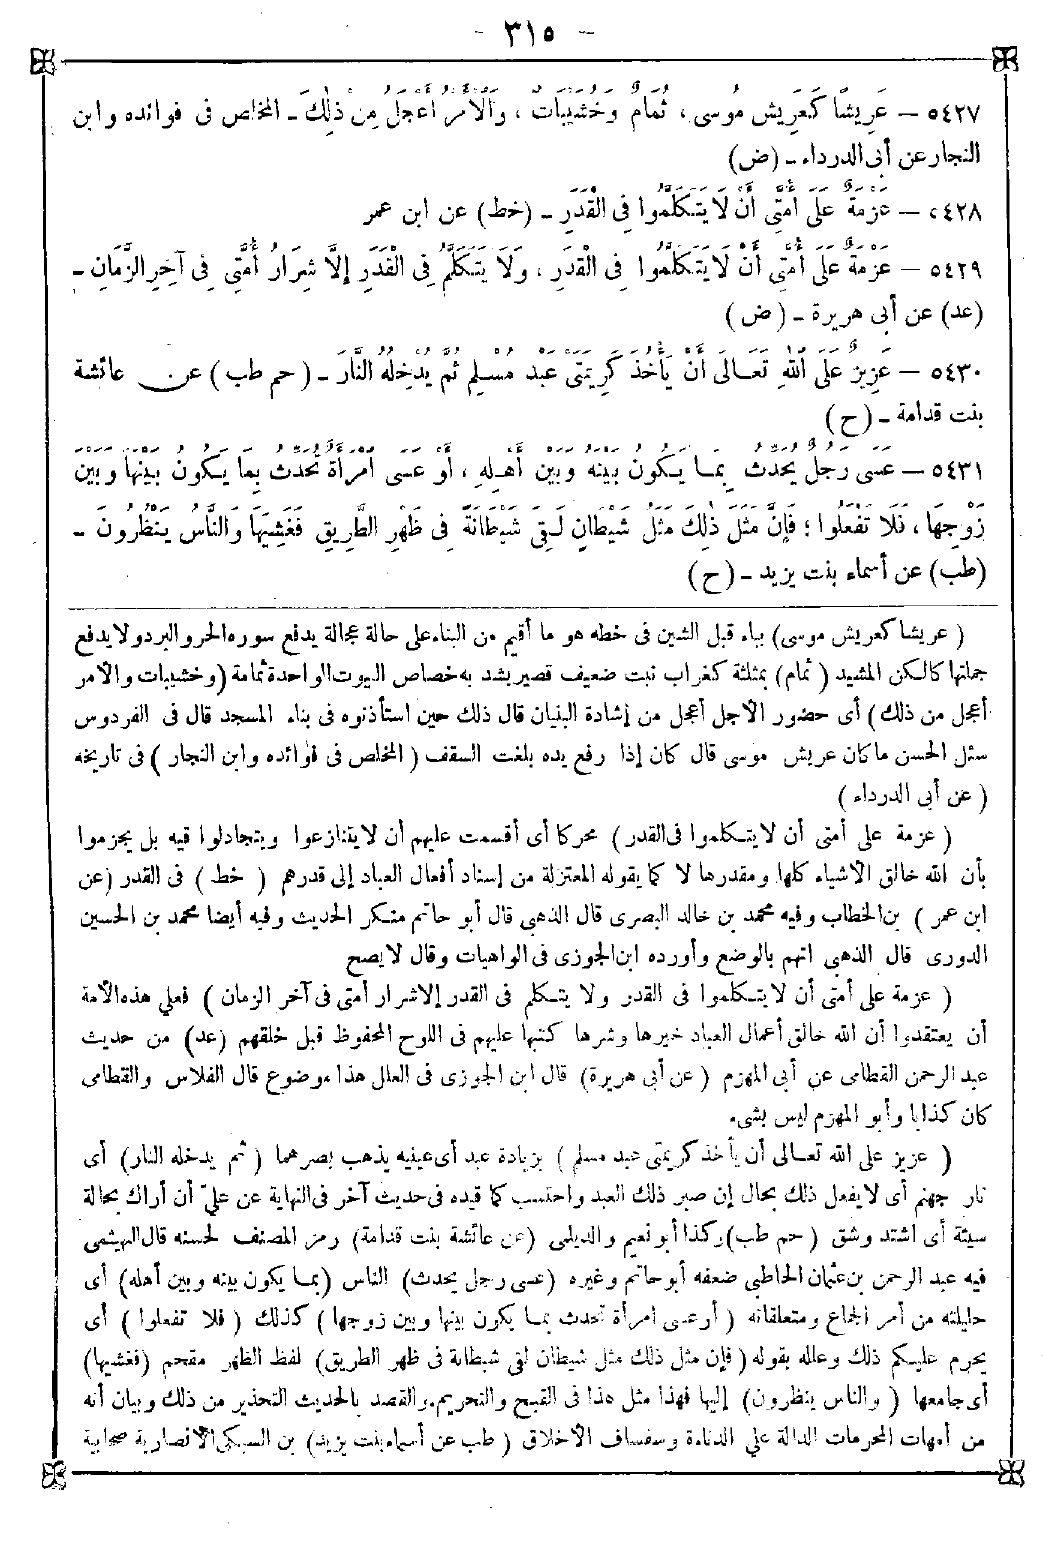 - ٣١٥ -
٥٤٢٧ — عَرِيشًا كَعَرِيشِ مُوسَى، ثُمَامٌ وَخُشَيْبَاتٌ، وَالْأَمْرُ أَعْجَلُ مِنْ ذٰلِكَ ـ المخلص فى فوائده وابن
النجار عن أبى الدرداء ـ (ض)
٥٤٢٨ — عَزْمَةٌ عَلَى أُمَّتِى أَنْ لَا يَتَكَلَّمُوا فِى الْقَدَرِ ـ (خط) عن ابن عمر
٥٤٢٩ — عَزْمَةٌ عَلَى أُمَّتِى أَنْ لَا يَتَكَلَّمُوا فِى الْقَدَرِ، وَلَا يَتَكَلَّمُ فِى الْقَدَرِ إِلَّا شِرَارُ أُمَّتِى فِى آخِرِ الزَّمَانِ ـ
(عد) عن أبى هريرة ـ (ض)
٥٤٣٠ — عَزِيزٌ عَلَى اللهِ تَعَالَى أَنْ يَأْخُذَ كَرِيمَتَىْ عَبْدٍ مُسْلِمٍ ثُمَّ يُدْخِلَهُ النَّارَ ـ (حم طب) عن عائشة
بنت قدامة ـ (ح)
٥٤٣١ — عَسَى رَجُلٌ يُحَدِّثُ بِمَا يَكُونُ بَيْنَهُ وَبَيْنَ أَهْلِهِ، أَوْ عَسَى امْرَأَةٌ تُحَدِّثُ بِمَا يَكُونُ بَيْنَهَا وَبَيْنَ
زَوْجِهَا، فَلَا تَفْعَلُوا؛ فَإِنَّ مَثَلَ ذٰلِكَ مَثَلُ شَيْطَانٍ لَقِىَ شَيْطَانَةً فِى ظَهْرِ الطَّرِيقِ فَغَشِيَهَا وَالنَّاسُ يَنْظُرُونَ ـ
(طب) عن أسماء بنت يزيد ـ (ح)
(عريشا كعريش موسى) بياء قبل الشين فى خطه هو ما أقيم من البناء على حالة عجالة يدفع سورة الحر والبرد ولا يدفع
جملتها كالكن المشيد (ثمام) بمثلثة كغراب نبت ضعيف قصير يشد به خصاص البيوت الواحدة ثمامة (وخشيبات والأمر
أعجل من ذلك) أى حضور الأجل أعجل من إشادة البنيان قال ذلك حين استأذنوه فى بناء المسجد قال فى الفردوس
سئل الحسن ما كان عريش موسى قال كان إذا رفع يده بلغت السقف (المخلص فى فوائده وابن النجار) فى تاريخه
(عن أبى الدرداء)
(عزمة على أمتى أن لا يتكلموا فى القدر) محركا أى أقسمت عليهم أن لا يتنازعوا ويتجادلوا فيه بل يجزموا
بأن الله خالق الأشياء كلها ومقدرها لا كما يقوله المعتزلة من إسناد أفعال العباد إلى قدرهم (خط) فى القدر (عن
ابن عمر) بن الخطاب وفيه محمد بن خالد البصرى قال الذهبى قال أبو حاتم منكر الحديث وفيه أيضا محمد بن الحسين
الدورى قال الذهبى اتهم بالوضع وأورده ابن الجوزى فى الواهيات وقال لا يصح
(عزمة على أمتى أن لا يتكلموا فى القدر ولا يتكلم فى القدر إلا شرار أمتى فى آخر الزمان) فعلى هذه الأمة
أن يعتقدوا أن الله خالق أعمال العباد خيرها وشرها كتبها عليهم فى اللوح المحفوظ قبل خلقهم (عد) من حديث
عبد الرحمن القطامى عن أبى المهزم (عن أبى هريرة) قال ابن الجوزى فى العلل هذا موضوع قال الفلاس والقطامى
كان كذابا وأبو المهزم ليس بشىء
(عزيز على الله تعالى أن يأخذ كريمتى عبد مسلم) بزيادة عبد أى عينيه يذهب بصرهما (ثم يدخله النار) أى
نار جهنم أى لا يفعل ذلك بحال إن صبر ذلك العبد واحتسب كما قيده فى حديث آخر فى النهاية عن علىّ أن أراك بحالة
سيئة أى اشتد وشق (حم طب) وكذا أبو نعيم والديلمى (عن عائشة بنت قدامة) رمز المصنف لحسنه قال الهيثمى
فيه عبد الرحمن بن عثمان الحاطبى ضعفه أبو حاتم وغيره (عسى رجل يحدث) الناس (بما يكون بينه وبين أهله) أى
حليلته من أمر الجماع ومتعلقاته (أو عسى امرأة تحدث بما يكون بينها وبين زوجها) كذلك (فلا تفعلوا) أى
يحرم عليكم ذلك وعلله بقوله (فإن مثل ذلك مثل شيطان لقى شيطانة فى ظهر الطريق) لفظ الظهر مقحم (فغشيها)
أى جامعها (والناس ينظرون) إليها فهذا مثل هذا فى القبح والتحريم والقصد بالحديث التحذير من ذلك وبيان أنه
من أمهات المحرمات الدالة على الدناءة وسفساف الأخلاق (طب عن أسماء بنت يزيد) بن السكن الأنصارية صحابية